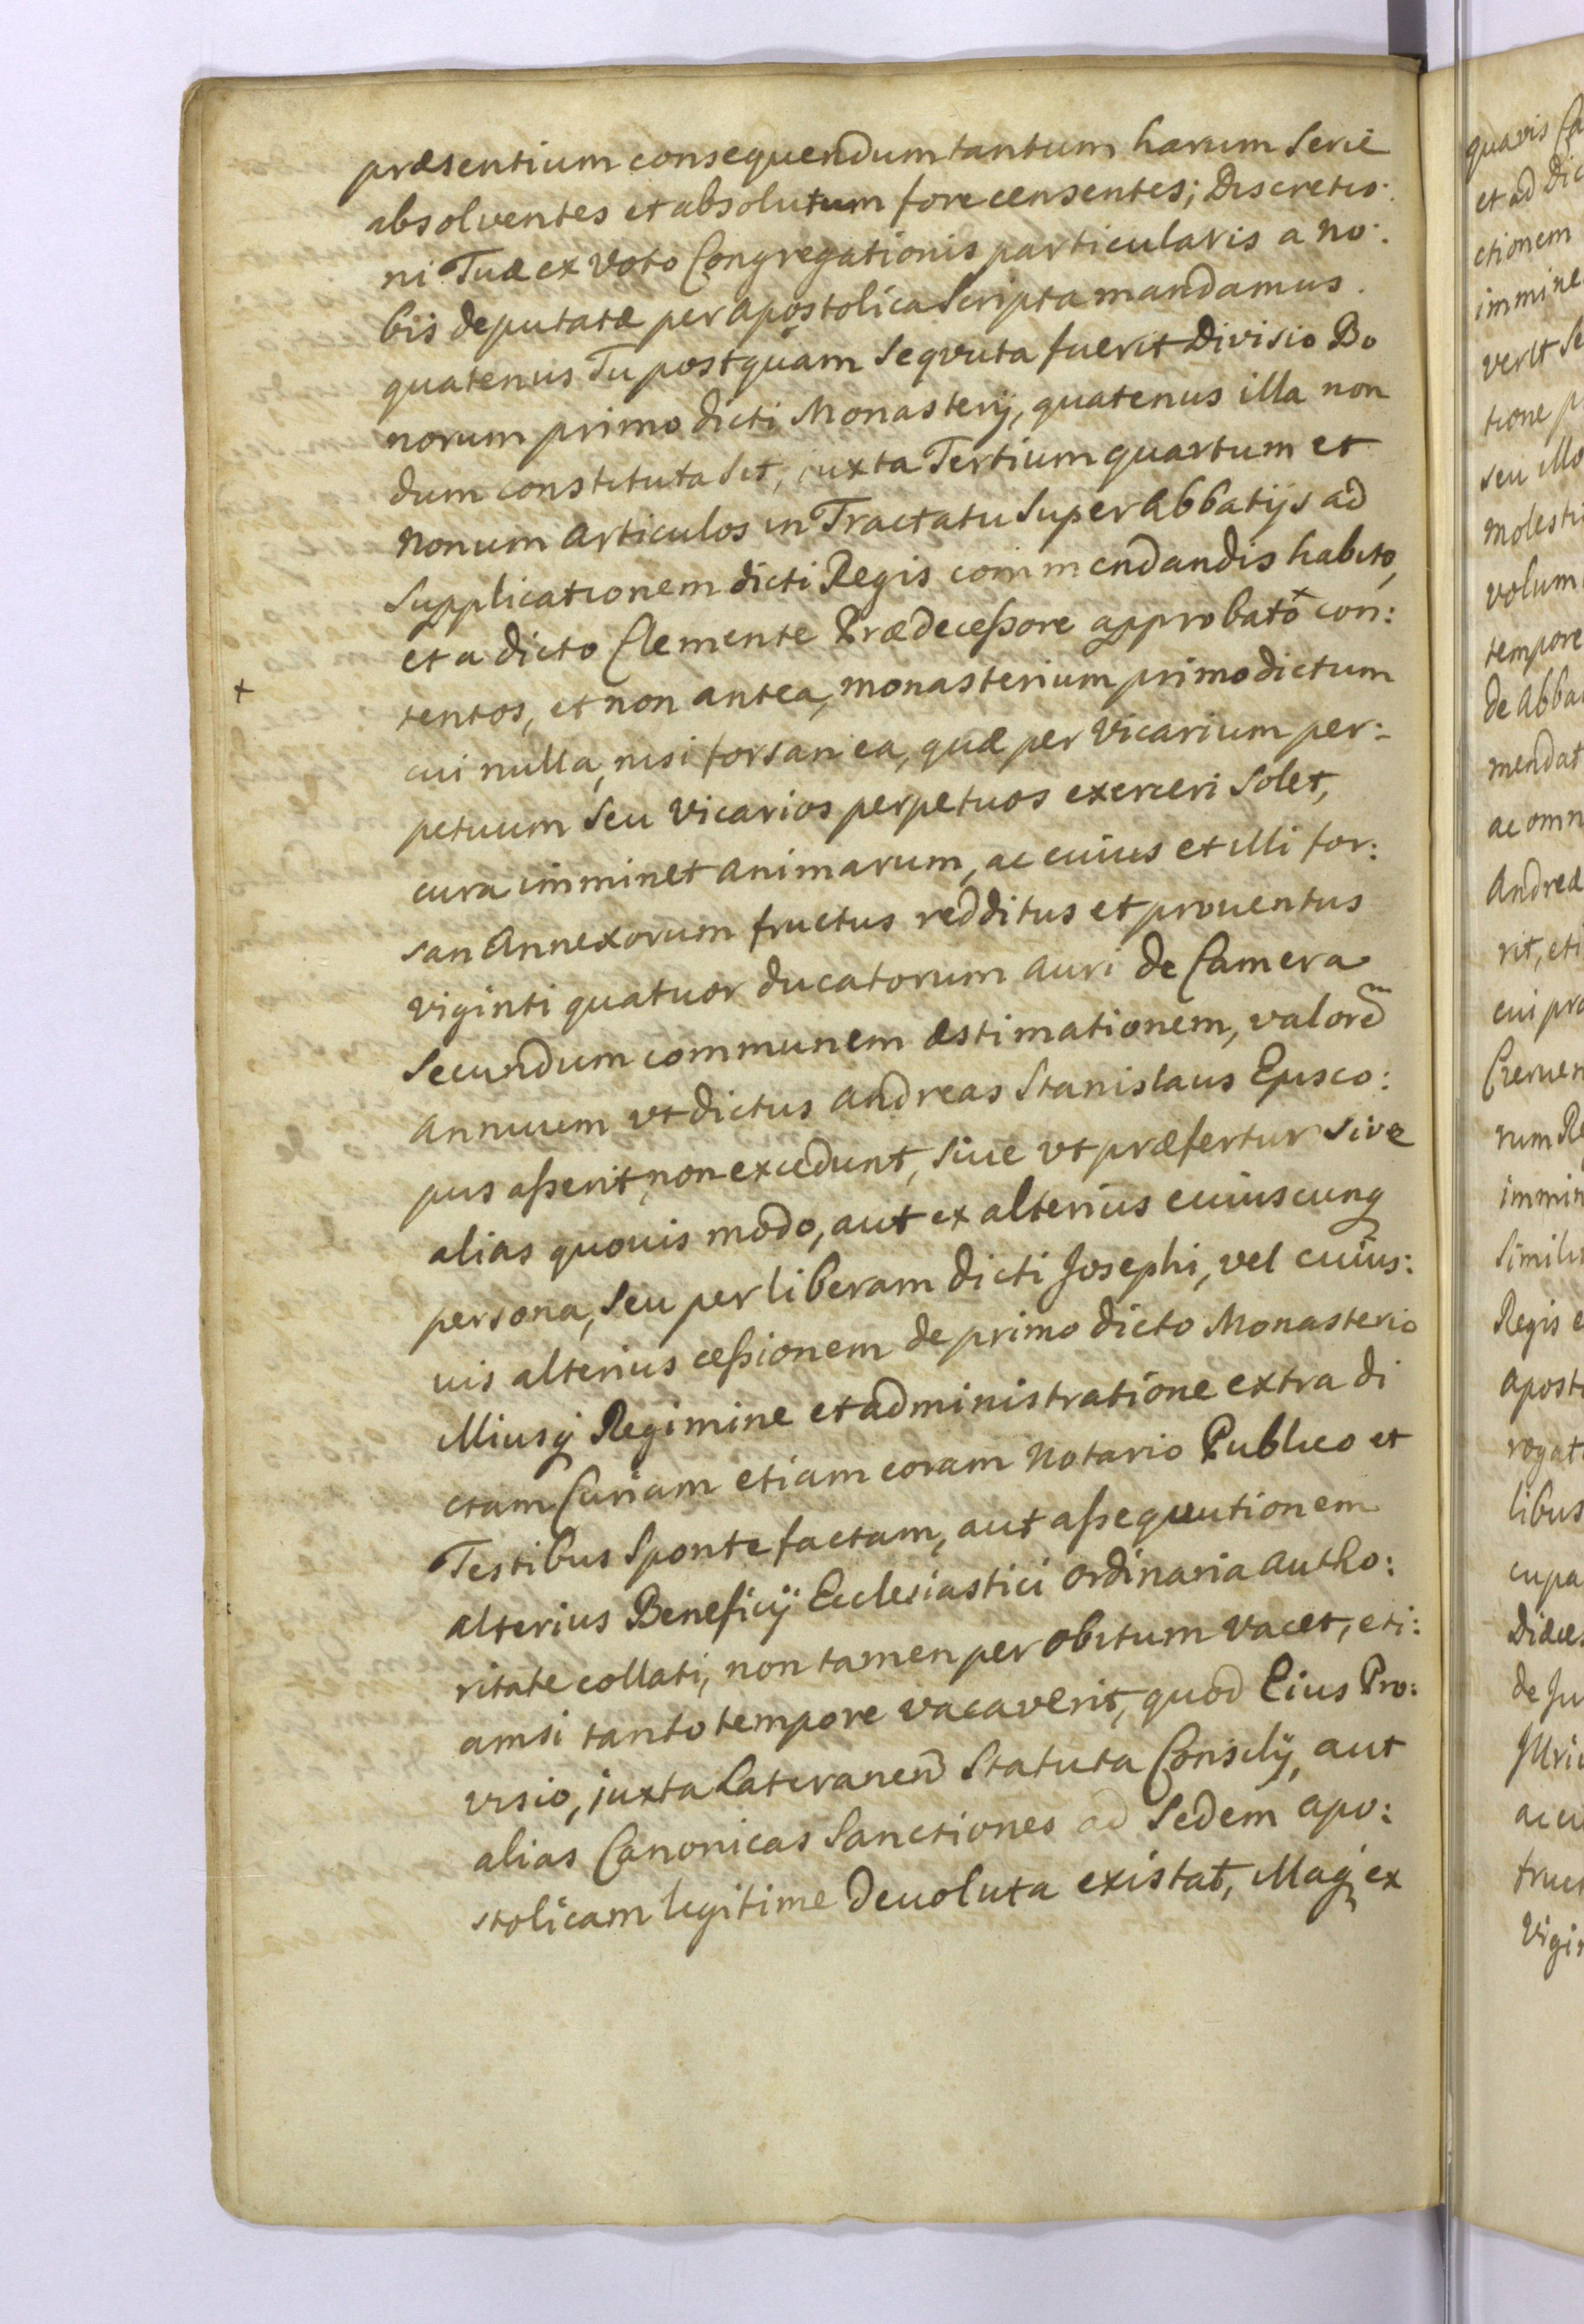 præsentium consequendum tantum harum Serie
absolventes et absolutum fore censentes; Discretio:
ni Tuæ ex Voto Congregationis particularis a No:
bis deputatæ per Apostolica Scripta mandamus.
quatenus Tu postquam Sequuta fuerit Divisio Bo
norum primo dicti Monasterij, quatenus illa non
dum constituta sit, iuxta Tertium quartum et
Nonum Articulos in Tractatu Super Abbatijs ad
Supplicationem dicti Regis commendandis habito,
et a dicto Clemente Prædecessore approbato con:
tentos, et non antea, Monasterium primodictum
cui nulla, nisi forsan ea, quæ per Vicarium per:
petuum Seu Vicarios perpetuos exerceri Solet,
cura imminet Animarum, ac cuius et illi for:
san Annexorum fructus redditus et prouentus
Viginti quatuor ducatorum Auri de Camera
Secundum communem æstimationem, valorem
Annuum vt dictus Andreas Stanislaus Episco:
pus asserit, non excedunt, Siue vt præfertur sive
alias quouis modo, aut ex alterius cuiuscunq
persona, Seu per liberam dicti Josephi, vel cuius:
uis alterius cessionem de primo dicto Monasterio
illiusq Regimine et administratione extra di
ctam Curiam etiam coram Notario Publico et
Testibus Sponte factam, aut assequutionem
alterius Beneficij Ecclesiastici Ordinaria Autho:
ritate collati, non tamen per obitum Vacet, eti:
amsi tanto tempore vacaverit, quod Eius Pro:
visio, iuxta Lateranen Statuta Consilij, aut
alias Canonicas Sanctiones ad Sedem Apo:
stolicam legitime Deuoluta existat, illaq ex
quavis Ca
et ad Dic
ctionem
immine
verit Se
tione p
seu illo
Molesti
volum
tempore
de Abba
mendat
ac omn
Andreæ
rit, eti
cui pro
rum Re
immin
Simili
Regis e
Aposto
rogat
libus
cupa
Diæces
de Ju
ac cu
fruct
Vigin